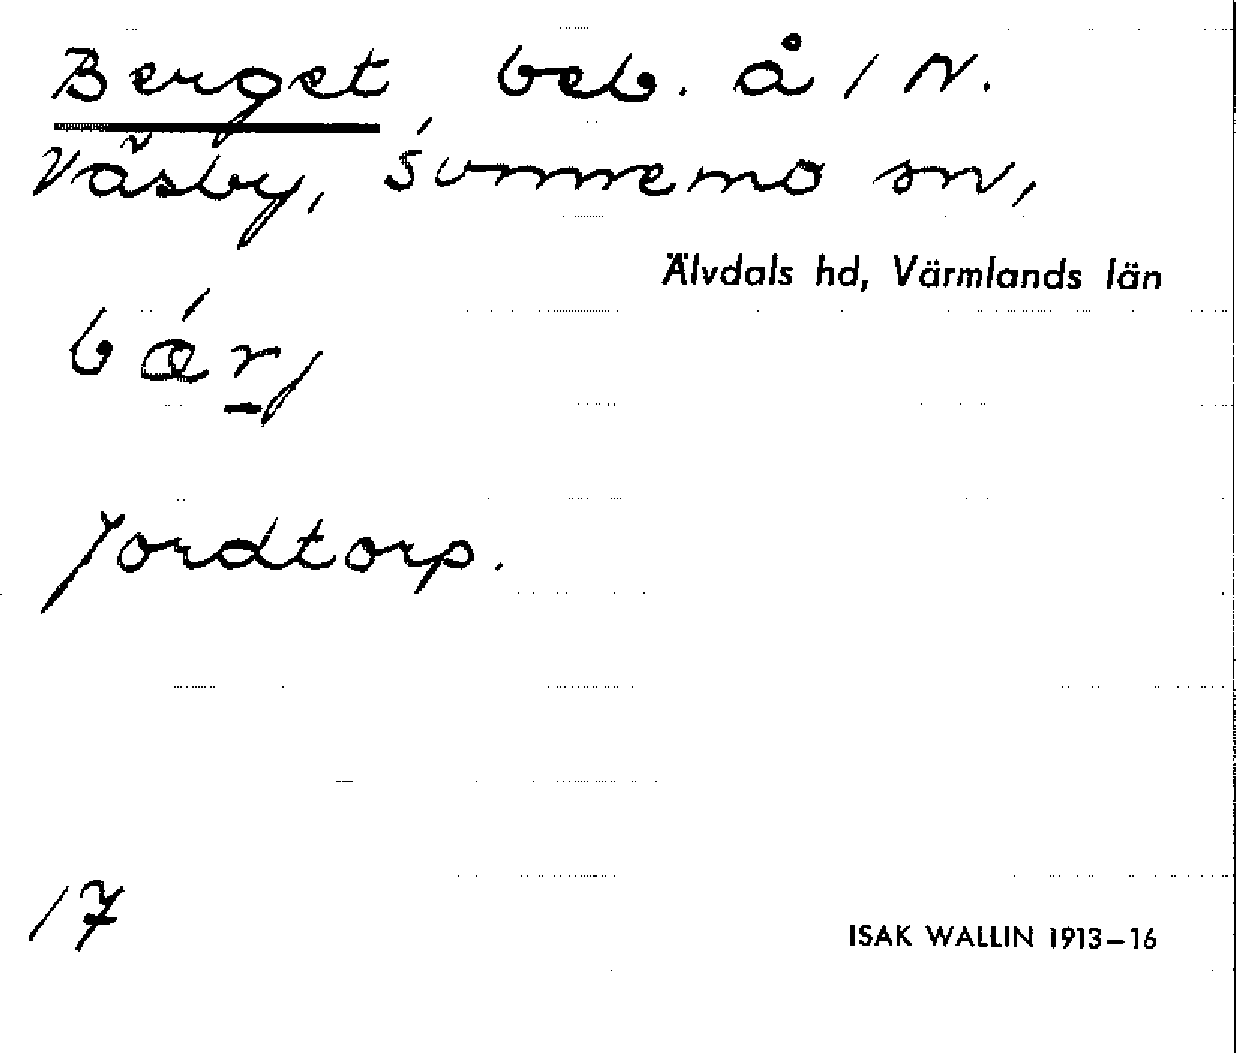 Berget beb. å 1 N.
Väsby, Sunnemo sn,
Älvdals hd, Värmlands län
bǽrj
Jordtorp.
17
ISAK WALLIN 1913–16